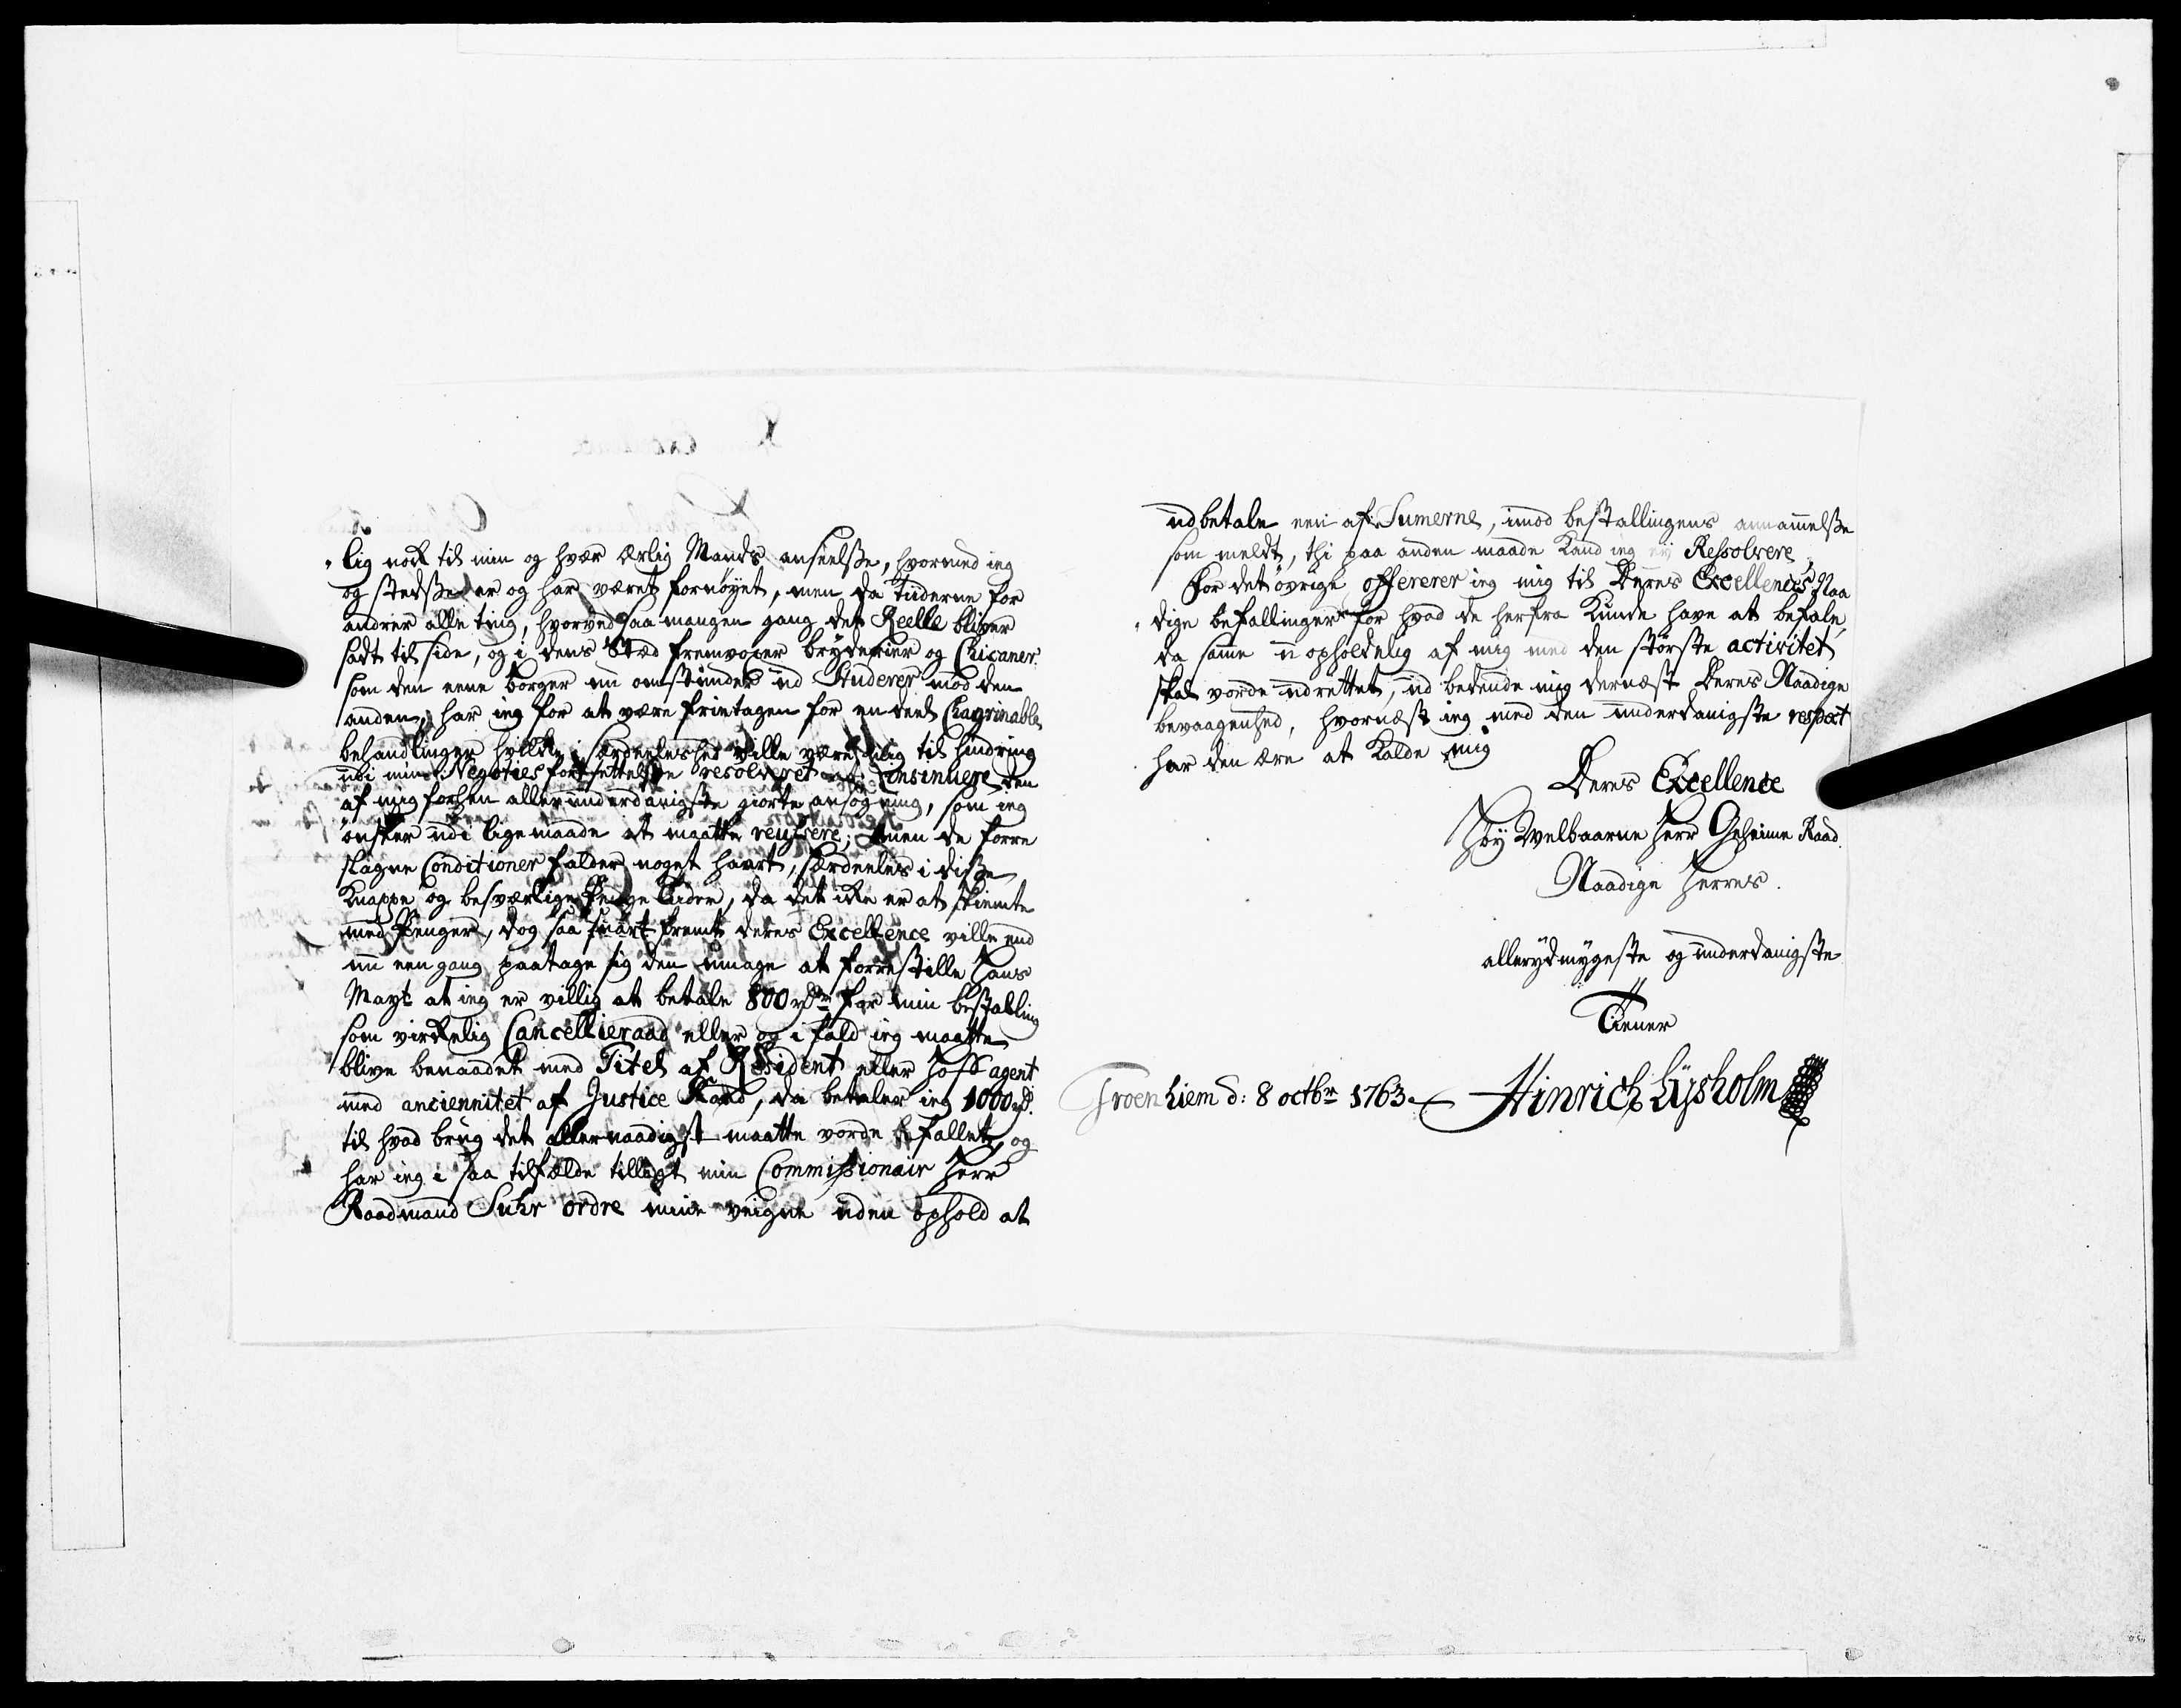 lig nok til min og hvær ærlig Mands anseelsse, hvormed ieg
og stedsse er og har været fornøyet, men da Tiiderne for
andrer alle ting, hvorved saa mangen gang det Reelle bliver
sadt til side, og i dens Stæd fremvoxer bryderier og Chicaner
som den eene borger nu omstunder ud Studerer mod den
anden, har ieg for at være frietagen for en deel Chagrinable
behandlinger hvilke i særdeeleshed ville være mig til hindring
udi mine Negoties fortsettelsse resolveret at Consinuere den
af mig forhen allerunderdanigste giorte ansøgning, som ieg
ønsker udi lige maade at maatte reussere; men de forre
slagne Conditioner falder noget haart, særdeeles i disse
knappe og besværlige Penge Tider, da det ikke er at skiemte
med Penger, dog saa fremt deres Excellence ville end
nu een gang paatage sig den umage at forrestille Hans
Mayt at ieg er villig at betale 800 rdr for min bestalling
som virkelig Cancellieraad eller og i fald ieg maatte
blive benaadet med Titel af Resident eller Hoff agent
med anciennitet af Justice Raad, da betaler ieg 1000 rd.
til hvad brug det allernaadigst maatte vorde befallet, og
har ieg i saa tilfælde tillagt min Commissionair Herr
Raadmand Suhr ordre mine veigne uden ophold at
udbetale een af Sumerne, imod bestallingens annammelsse
som meldt, thi paa anden maade kand ieg ey Ressolvere,
For det øvrige offererer ieg mig til Deres Excellences Naa
dige befallinger for hvad de herfra kunde have at befale,
da samme uopholdelig af mig med den største activitet
skal vorde udrettet, ud bedende mig dernæst Deres Naadige
bevaagenhed, hvornæst ieg med den underdanigste respect
har den ære at kalde mig
Deres Excellence
Høy Welbaarne Herr Geheime Raad.
Naadige Herres.
allerydmygeste og underdanigste
Tiener
Troenhiem d: 8 octbr 1763. Hinrich Lÿsholm